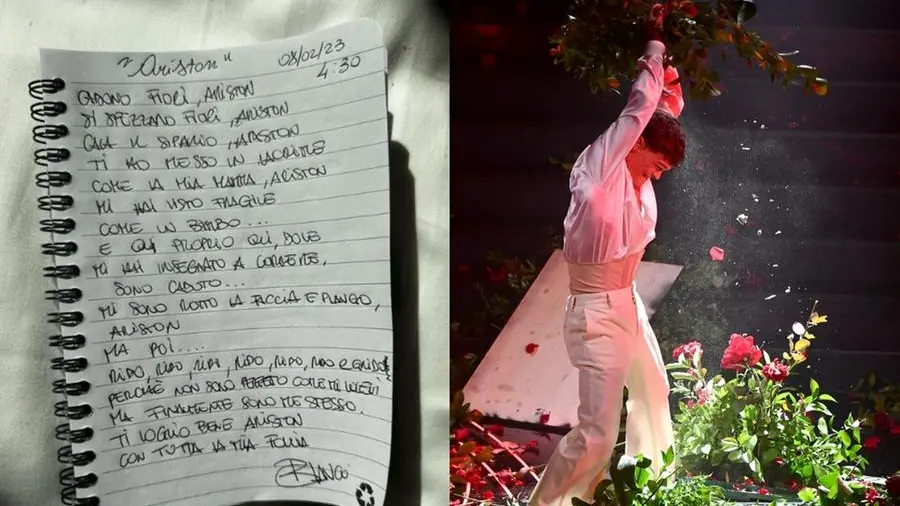 "Ariston" 08/02/23
4:30
CADONO FIORI, ARISTON
SI SPEZZANO FIORI, ARISTON
CALA IL SIPARIO, ARISTON
TI HO MESSO IN LACRIME
COME LA MIA MAMMA, ARISTON
MI HAI VISTO FRAGILE
COME UN BIMBO...
E QUI PROPRIO QUI, DOVE
MI HAI INSEGNATO A CORRERE,
SONO CADUTO...
MI SONO ROTTO LA FACCIA E PIANGO,
ARISTON
MA POI....
RIDO, RIDO, RIDO, RIDO, RIDO, RIDO E GRIDO
PERCHÈ NON SONO PERFETTO COME MI VUOI
MA FINALMENTE SONO ME STESSO.
TI VOGLIO BENE ARISTON
CON TUTTA LA MIA FOLLIA
BLANCO